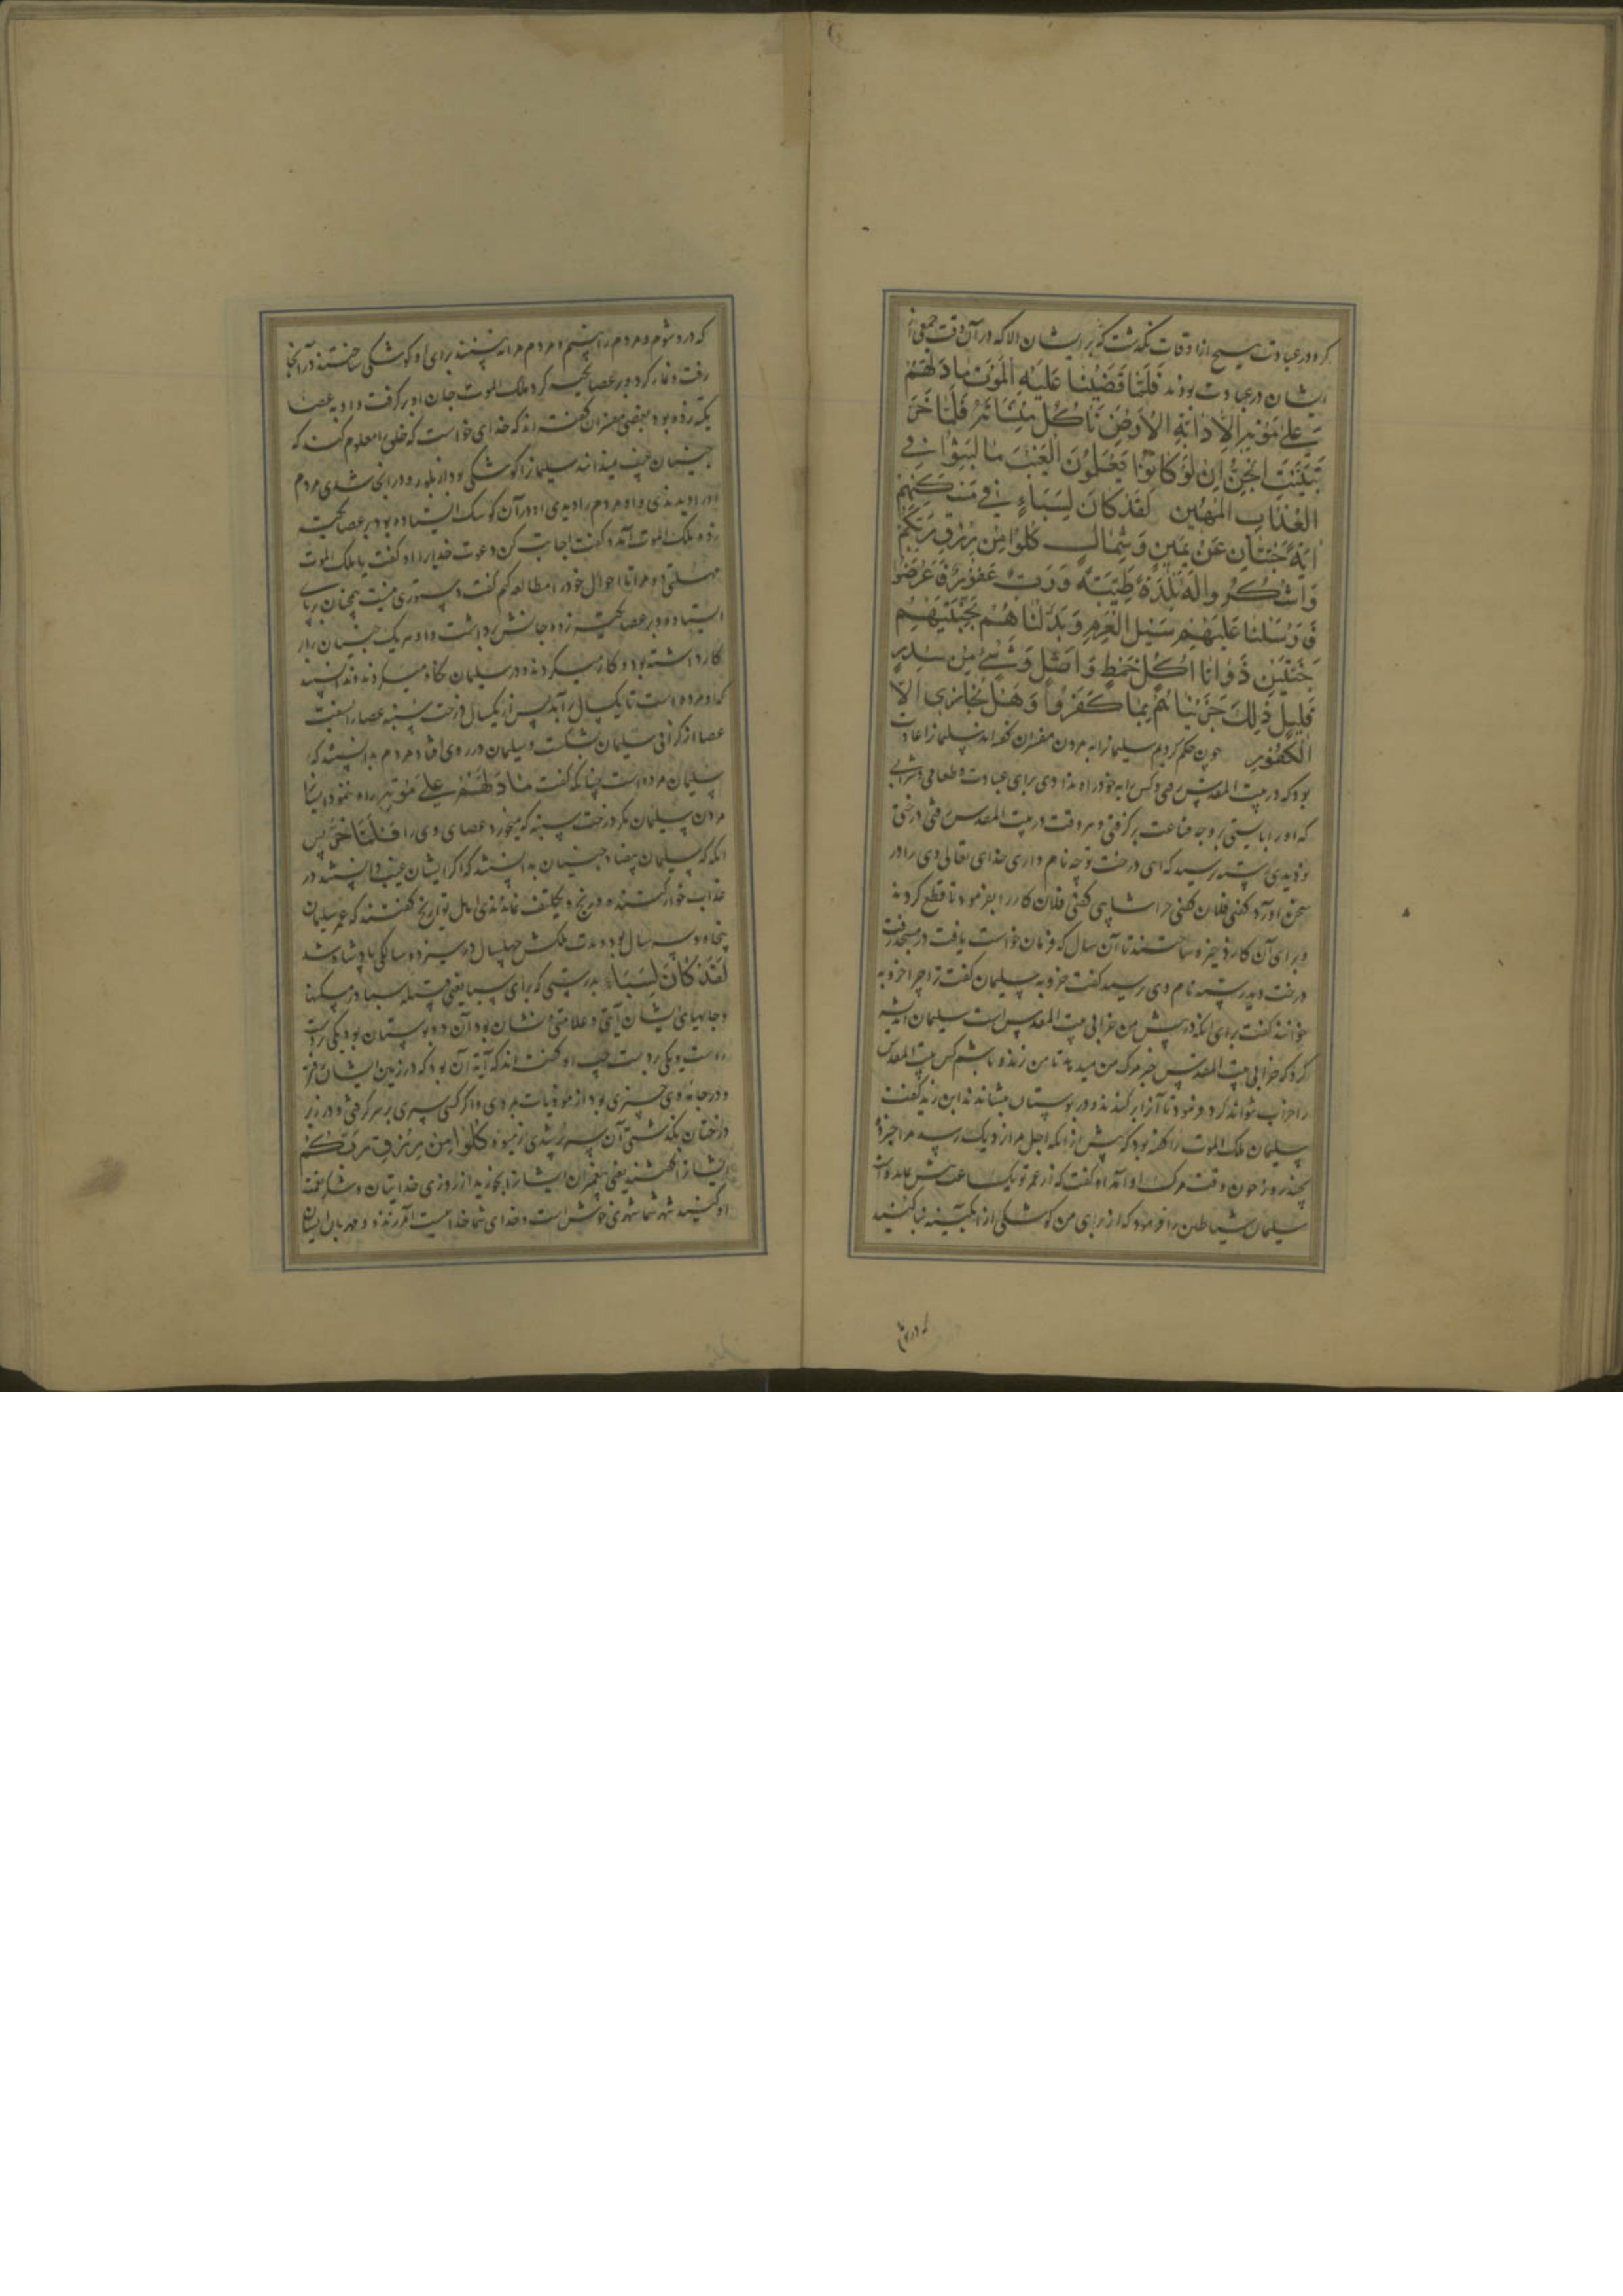 کرد و در عبادت هیچ از اوقات نگذشت که بر ایشان الا که در آن وقت جمعی از
ایشان در عبادت بودند فَلَمَّا قَضَيْنَا عَلَيْهِ الْمَوْتَ مَا دَلَّهُمْ
عَلَى مَوْتِهِ إِلَّا دَابَّةُ الْأَرْضِ تَأْكُلُ مِنْسَأَتَهُ فَلَمَّا خَرَّ
تَبَيَّنَتِ الْجِنُّ أَنْ لَوْ كَانُوا يَعْلَمُونَ الْغَيْبَ مَا لَبِثُوا فِي
الْعَذَابِ الْمُهِينِ لَقَدْ كَانَ لِسَبَإٍ فِي مَسْكَنِهِمْ
آيَةٌ جَنَّتَانِ عَنْ يَمِينٍ وَشِمَالٍ كُلُوا مِنْ رِزْقِ رَبِّكُمْ
وَاشْكُرُوا لَهُ بَلْدَةٌ طَيِّبَةٌ وَرَبٌّ غَفُورٌ فَأَعْرَضُوا
فَأَرْسَلْنَا عَلَيْهِمْ سَيْلَ الْعَرِمِ وَبَدَّلْنَاهُمْ بِجَنَّتَيْهِمْ
جَنَّتَيْنِ ذَوَاتَا أُكُلٍ خَمْطٍ وَأَثْلٍ وَشَيْءٍ مِنْ سِدْرٍ
قَلِيلٍ ذَلِكَ جَزَيْنَاهُمْ بِمَا كَفَرُوا وَهَلْ نُجَازِي إِلَّا
الْكَفُورَ چون حکم کردیم سلیمانرا به مردن مفسران گفته‌اند سلیمانرا عادت
بود که در بیت المقدس رفتی و کس را به خود راه ندادی برای عبادت و طعامی و شرابی
که او را بایستی بر وجه قناعت برگرفتی و هر وقت در بیت المقدس رفتی درختی
نو دیدی رسته پرسید که ای درخت تو چه نام داری خدای تعالی وی را در
سخن آورد گفتی فلان گفتی چرا شایی گفتی فلان کار را بفرمود تا قطع کردند
و برای آن کار ذخیره ساختند تا آن سال که فرمان خواست یافت در مسجد رفت
درخت دید رسته نام وی پرسید گفت خروبه سلیمان گفت ترا چرا خروبه
خوانند گفت برای آنکه در پیش من خرابی بیت المقدس است سلیمان اندیشه
کرد که خرابی بیت المقدس خبر مرگ من میدهد تا من زنده باشم کس بیت المقدس
را خراب نتواند کرد و فرمود تا آنرا برکندند و در بوستان بنشاندند ابن زید گفت
سلیمان ملک الموت را گفته بود که پیش از آنکه اجل مرا نزدیک رسد مرا خبر ده
بچند روز چون وقت مرگ او آمد او گفت که از عمر تو یک ساعت بیش نمانده است
سلیمان شیاطین را فرمود که از برای من کوشکی از آبگینه بنا کنید
که در شوم
که در و شوم و مردم را بینم و مردم مرا نه بینند برای او کوشکی ساختند در آنجا
رفت و نماز کرد و بر عصا تکیه کرد ملک الموت جان او بر گرفت و او به عصا
تکیه زده بود بعضی مفسران گفته‌اند که خدای خواست که خلق را معلوم کند که
جنیان غیب ندانند سلیمانرا کوشکی بود از بلور و در آنجا شدی مردم
او را دیدندی و او مردم را دیدی او در آن کوشک ایستاده بود بر عصا تکیه
زده ملک الموت آمد و گفت اجابت کن دعوت خدایرا او گفت یا ملک الموت
مهلتی ده مرا تا احوال خود را مطالعه کنم گفت دستوری نیست همچنان بر پای
ایستاده و بر عصا تکیه زده جانش برداشت و او هر یک جنیان را بر
کار داشته بود و کار میکردند و در سلیمان نگاه میکردند و ندانستند
که او مرده است تا یک سال برآمد پس از یکسال درخت سنبه عصا را بسفت
عصا از گرانی سلیمان بشکست و سلیمان در روی افتاد مردم بدانستند که
سلیمان مرده است چنانکه گفت مَا دَلَّهُمْ عَلَى مَوْتِهِ راه ننمود ایشانرا
مردن سلیمان مگر درخت سنبه که میخورد عصای وی را فَلَمَّا خَرَّ پس
آنگه که سلیمان بیفتاد جنیان بدانستند که اگر ایشان غیب دانستند در
عذاب خوار کننده و در رنج و تکلف نماندندی اهل تواریخ گفتند که عمر سلیمان
پنجاه و سه سال بود و مدت ملکش چهل سال و در سیزده سالگی پادشاه شد
لَقَدْ كَانَ لِسَبَإٍ بدرستی که برای سبا یعنی قبیله سبا در مسکنها
و جایهای ایشان آیتی و علامتی و نشان بود آن دو بوستان بود یکی بر دست
راست و یکی بر دست چپ او گفته‌اند که آیة آن بود که در زمین ایشان
و در جامه وی چیزی بود از موذیات مردی و اگر کسی سبدی بر سر گرفتی و در زیر
درختان بگذشتی آن سبد پر شدی از میوه كُلُوا مِنْ رِزْقِ رَبِّكُمْ
ایشانرا گفتند یعنی پیغمبران ایشانرا بخورید از روزی خدایتان و شکر نعمت
او کنید شهر شما شهری خوش است و خدای شما خدائیست آمرزنده و مهربان ایشان